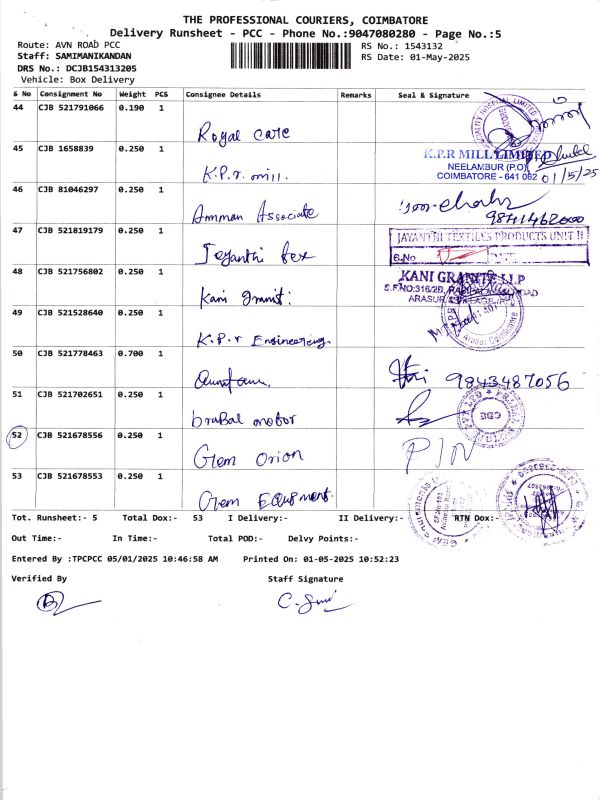 THE PROFESSIONAL COURIERS, COIMBATORE
Delivery Runsheet - PCC - Phone No.:9047080280 - Page No.:5
Route: AVN ROAD PCC
Staff: SAMIMANIKANDAN
DRS No.: DCJB154313205
Vehicle: Box Delivery
RS No.: 1543132
RS Date: 01-May-2025
S No Consignment No Weight PCS Consignee Details Remarks Seal & Signature
44 CJB 521791066 0.190 1
Royal Care
45 CJB 1658839 0.250 1
K.P.r. mill.
K.P.R MILL LIMITED
NEELAMBUR (P.O)
COIMBATORE - 641 062 01/5/25
46 CJB 81046297 0.250 1
Amman Associate
9841462000
47 CJB 521819179 0.250 1
Jeyanthi tex
JAYANTHI TEXTILES PRODUCTS UNIT II
S.No
48 CJB 521756802 0.250 1
Kani granit:
KANI GRANITE LLP
49 CJB 521528640 0.250 1
K.P.r Engineering.
50 CJB 521778463 0.700 1
9843487056
51 CJB 521702651 0.250 1
brabal motor
CBE
52 CJB 521678556 0.250 1
Gem Orion
53 CJB 521678553 0.250 1
Gem Equpment.
Tot. Runsheet:- 5 Total Dox:- 53 I Delivery:- II Delivery:- RTN Dox:-
Out Time:- In Time:- Total POD:- Delvy Points:-
Entered By :TPCPCC 05/01/2025 10:46:58 AM Printed On: 01-05-2025 10:52:23
Verified By Staff Signature